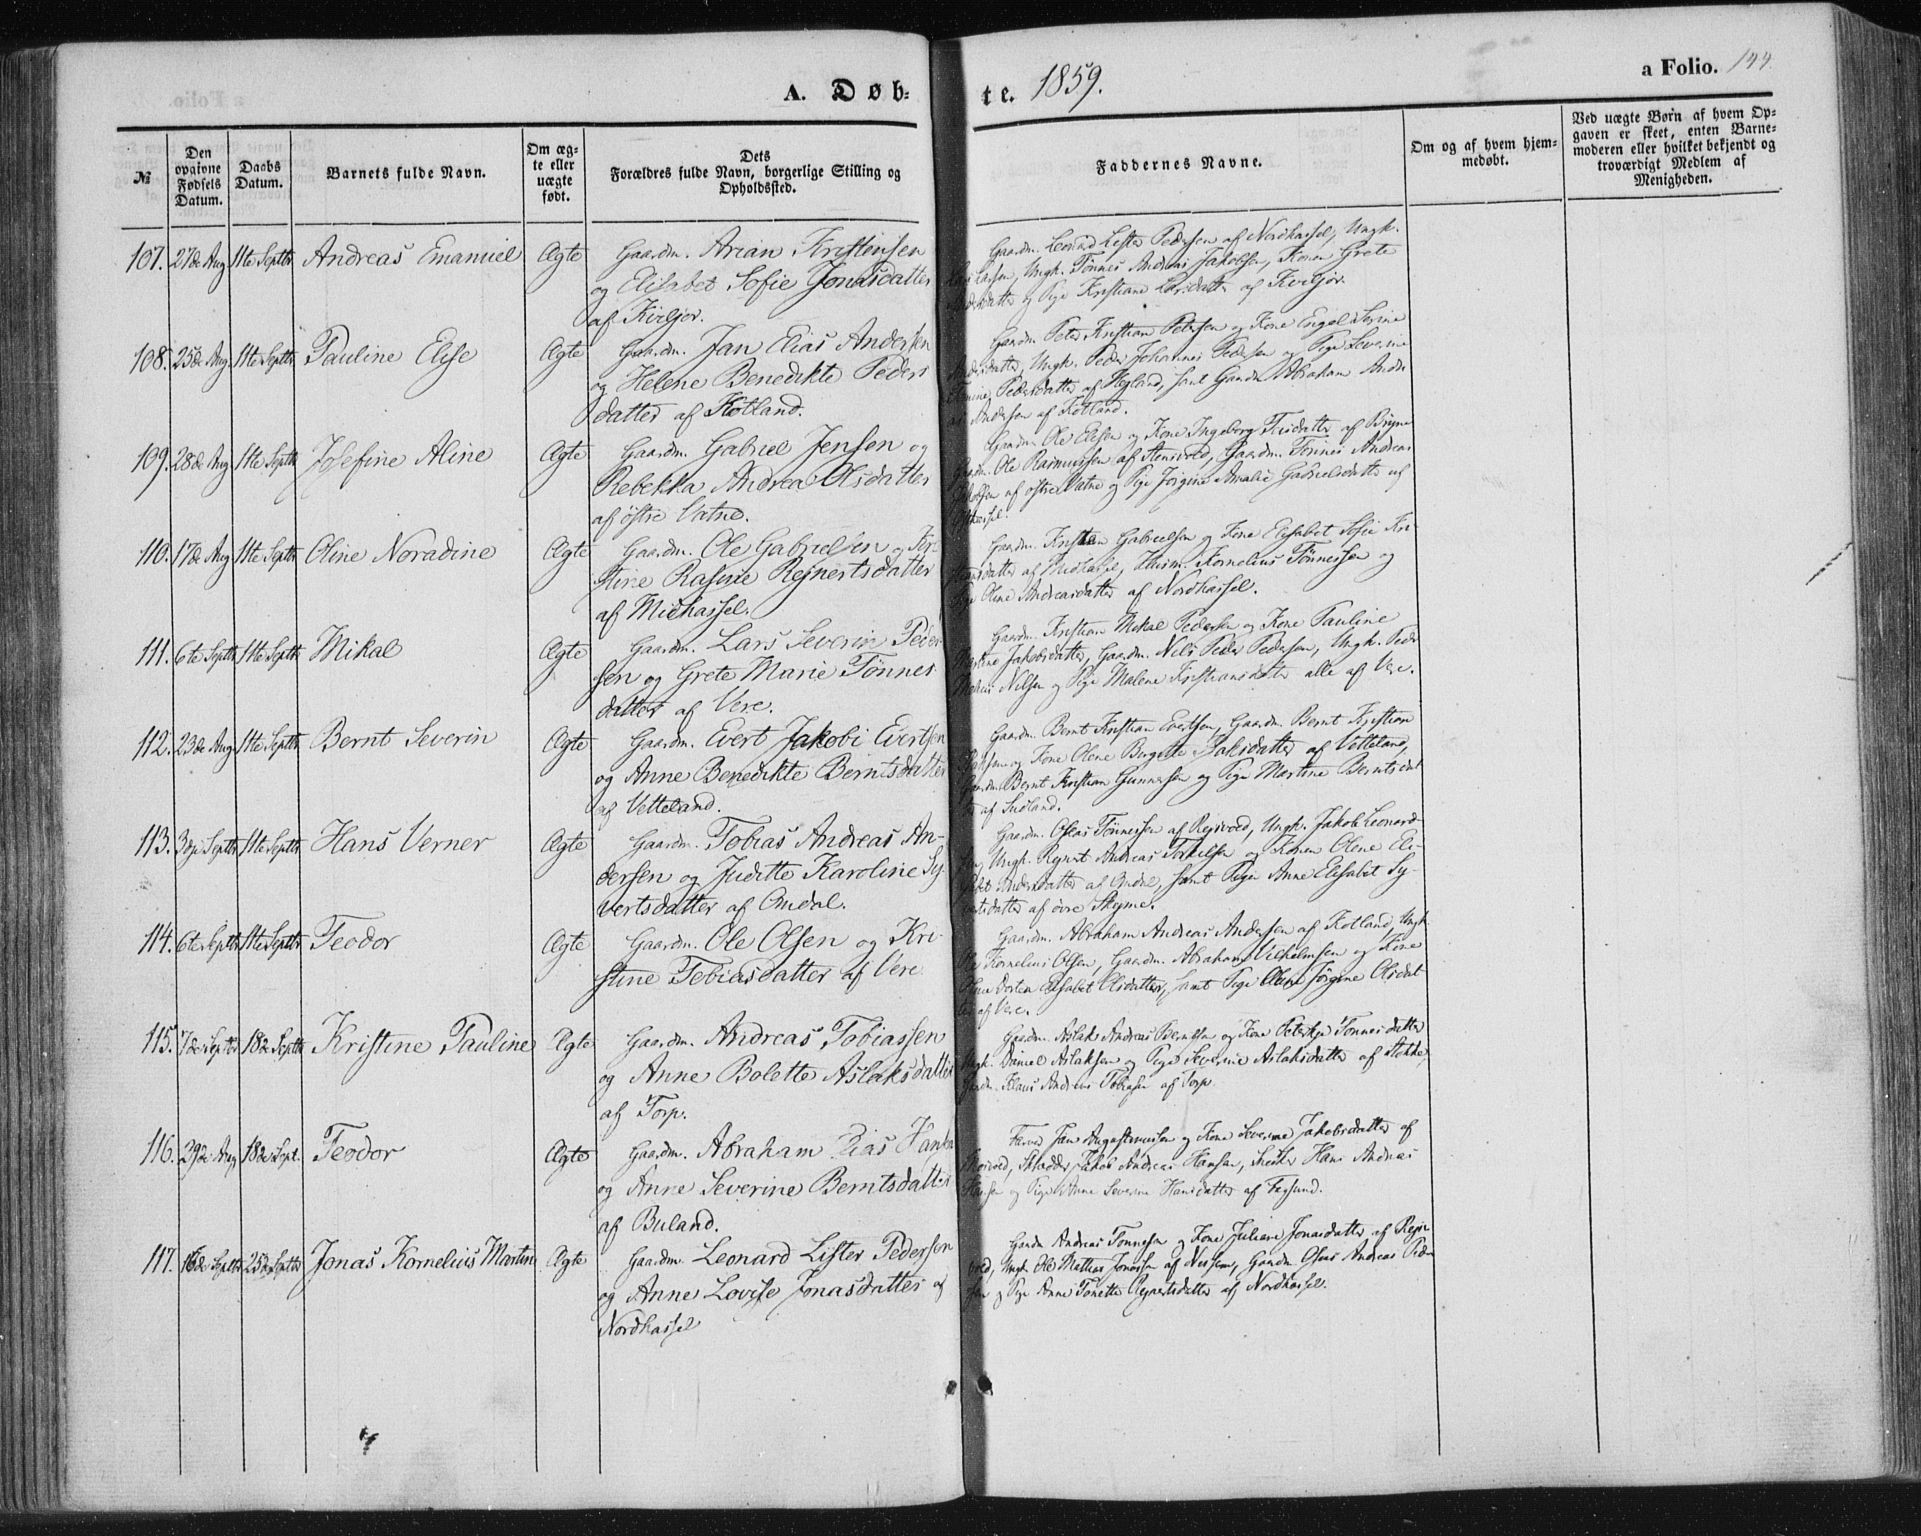 A. Døb-
te. 1859.
a Folio. 144.
№
Den opgivne Fødsels Datum.
Daabs Datum.
Barnets fulde Navn.
Om æg-te eller uægte født.
Dets Forældres fulde Navn, borgerlige Stilling og Opholdssted.
Faddernes Navne.
Om og af hvem hjem-medøbt.
Ved uægte Børn af hvem Op-gaven er skeet, enten Barne-moderen eller hvilket bekjendt og troværdigt Medlem af Menigheden.
107. 27de Aug 11te Septbr Andreas Emanuel Ægte Gaardm. Arian Kristensen
og Elisabet Sofie Jonasdatter
af Kviljor.
Gaardm. Leonard Lister Pedersen af Nordhassel, Ungk.
Larsen, Ungk. Tønnes Andreas Jakobsen, Konen Grete
og Pige Kristiane Larsdatter af Kviljor.
108. 25de Aug. 11te Septbr Pauline Elise Ægte Gaardm. Jan Elias Andersen
og Helene Benedikte Peders
datter af Kotland.
Gaardm. Peter Kristian Petersen og Kone Engel Serine
Ungk. Peder Johannes Pedersen og Pige Severine
Pedersdatter af Hejland, samt Gaardm Abraham Andre
as Andersen af Kotland.
109. 28de Aug 11te Septbr Josefine Aline Ægte Gaardm. Gabriel Jensen og
Rebekka Andrea Olsdatter
af østre Vatne.
Gaardm. Ole Elesen og Kone Ingeborg af Bryne
Gaardm. Ole Rasmussen af Stensvold, Gaardm. Tønnes Andreas
af østre Vatne og Pige Jørgine Amalie Gabrielsdatter af
110. 17de Aug 11te Septbr Oline Noradine Ægte Gaardm. Ole Gabrielsen og Kir-
stine Rasine Rejnertsdatter
af Midhassel.
Gaardm. Kristen Gabrielsen og Kone Elisabet Sofie Kri-
af Midhassel, Husm. Kornelius Tønnessen og
Pige Oline Andreasdatter af Nordhassel.
111. 6te Septbr 11te Septbr Mikal Ægte Gaardm. Lars Severin Peder-
sen og Grete Marie Tønnes
datter af Vere.
Gaardm. Kristian Mikal Pedersen og Kone Pauline
Jakobsdatter, Gaardm. Nels Peder Pedersen, Ungk. Peder
Nilsen og Pige Malene Kristiansdatter alle af Vere.
112. 23de Aug 11te Septbr Bernt Severin Ægte Gaardm. Evert Jakobi Evertsen
og Anne Benedikte Berntsdatter
af Vetteland.
Gaardm. Bernt Kristian Evertsen, Gaardm. Bernt Kristian
og Kone Olene Birgitte af Vetteland,
Gaardm. Bernt Kristian Gunnersen og Pige Martine Berntsdat
ter af Sudland.
113. 3die Septbr 11te Septbr Hans Verner Ægte Gaardm. Tobias Andreas An-
dersen og Juditte Karoline Sy-
vertsdatter af Omdal.
Gaardm. Oseas Tønnessen af Rejsvold, Ungk. Jakob Leonard-
sen, Ungk. Rejnert Andreas Torkelsen og Konen Olene Eli-
Andersdatter af samt Pige Anne Elisabet Sy-
vertsdatter af øvre Skejme.
114. 6te Septbr 11te Septbr Teodor Ægte Gaardm. Ole Olsen og Kri-
stine Tobiasdatter af Vere
Gaardm. Abraham Andreas Andersen af Kotland, Ungk.
Kornelius Olsen, Gaardm. Abraham Vilhelmsen og Kone
Elisabet Olsdatter, samt Pige Oline Jørgine Olsdat
ter af Vere.
115. 7de Septbr 18de Septbr Kristine Pauline Ægte Gaardm. Andreas Tobiassen
og Anne Bolette Aslaksdatter
af Torp.
Gaardm. Aslak Andreas Berntsen og Kone Tønnesdatter
Ungk. Daniel Aslaksen og Pige Severine Aslaksdatter af Stokke,
Gaardm. Klaus Andreas Tobiasen af Torp.
116. 29de Aug 18de Sept. Teodor Ægte Gaardm. Abraham Elias Hansen
og Anne Severine Berntsdatter
af Buland.
Farver Jan Augustinussen og Kone Severine Jakobsdatter af
Skrædder Jakob Andreas Hansen, Hans Andreas
Hansen og Pige Anne Severine Hansdatter af Farsund.
117. 16de Septbr 25de Septbr Jonas Kornelius Martin Ægte Gaardm. Leonard Lister Pedersen
og Anne Lovise Jonasdatter af
Nordhassel
Gaardm Andreas Tønnesen og Kone Juliane Jonasdatter af Rejs-
vold, Ungk. Ole Mathias Jonassen af Nessem, Gaardm Oseas Andreas Peder
sen og Pige Anne Tonette Rejnertsdatter af Nordhassel.